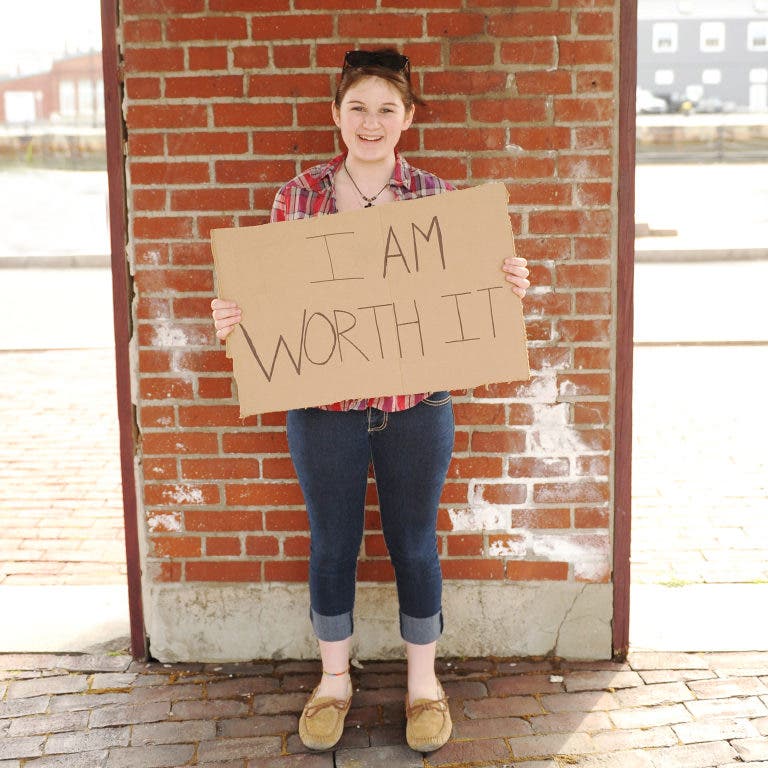 I AM
WORTH IT